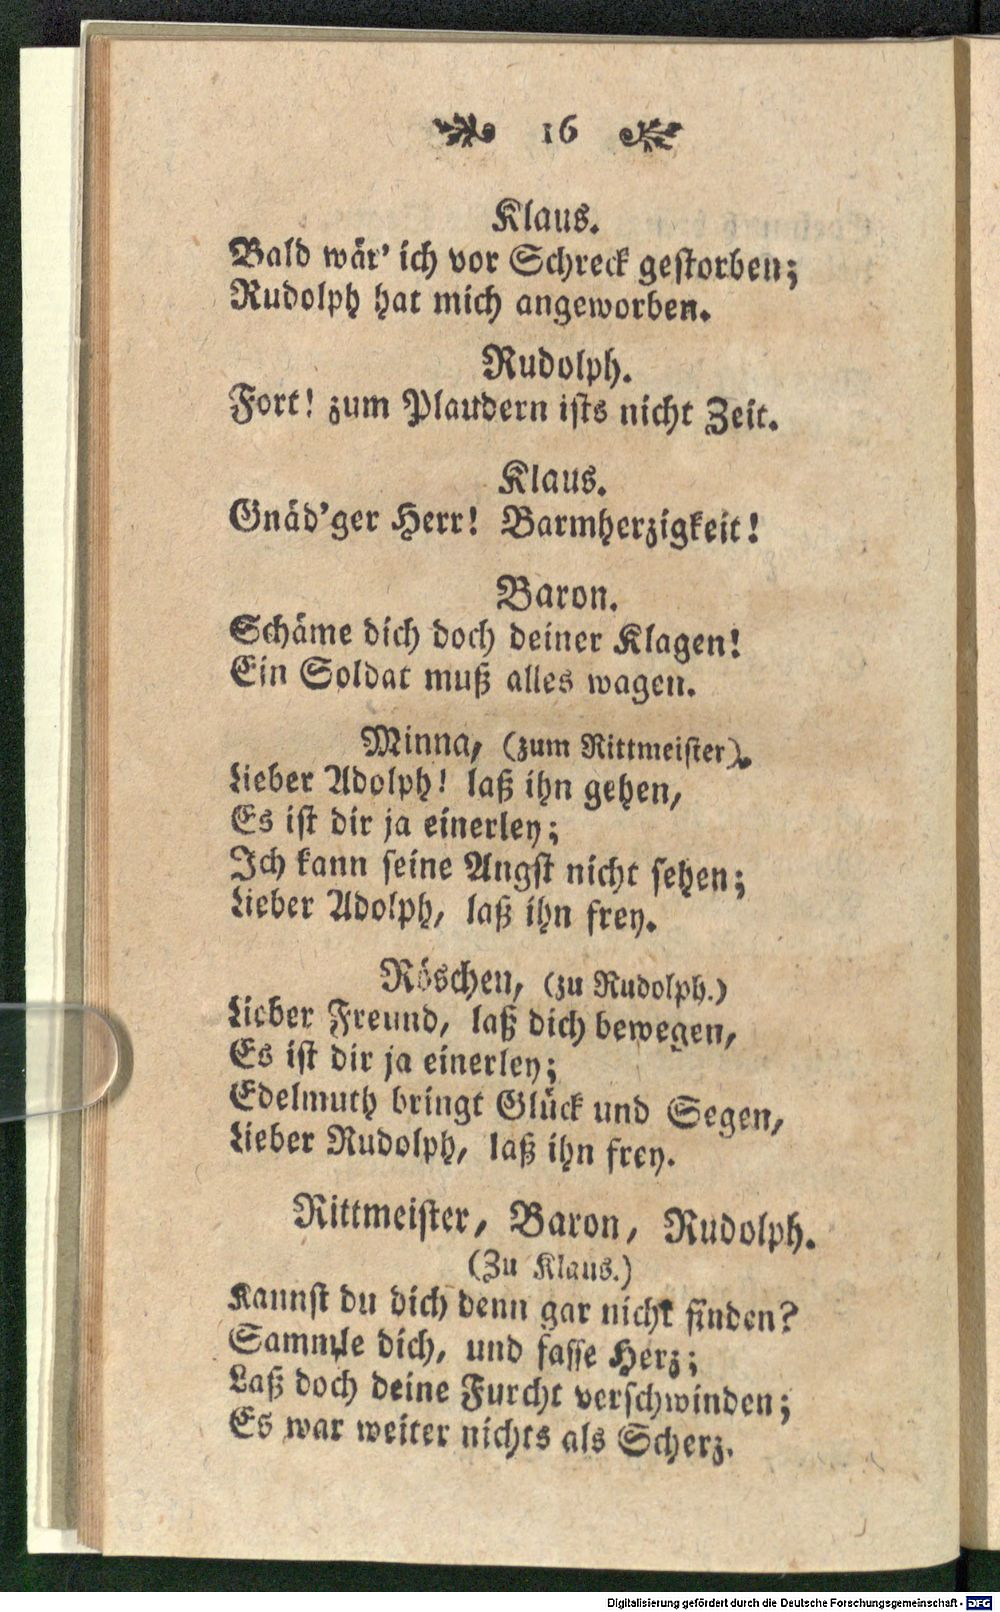 16
Klaus.
Bald wär' ich vor Schreck gestorben;
Rudolph hat mich angeworben.
Rudolph.
Fort! zum Plaudern ists nicht Zeit.
Klaus.
Gnäd'ger Herr! Barmherzigkeit!
Baron.
Schäme dich doch deiner Klagen!
Ein Soldat muß alles wagen.
Minna, (zum Rittmeister).
Lieber Adolph! laß ihn gehen,
Es ist dir ja einerley;
Ich kann seine Angst nicht sehen;
Lieber Adolph, laß ihn frey.
Röschen, (zu Rudolph.)
Lieber Freund, laß dich bewegen,
Es ist dir ja einerley;
Edelmuth bringt Glück und Segen,
Lieber Rudolph, laß ihn frey.
Rittmeister, Baron, Rudolph.
(Zu Klaus.)
Kannst du dich denn gar nicht finden?
Sammle dich, und fasse Herz;
Laß doch deine Furcht verschwinden;
Es war weiter nichts als Scherz.
Digitalisierung gefördert durch die Deutsche Forschungsgemeinschaft - DFG